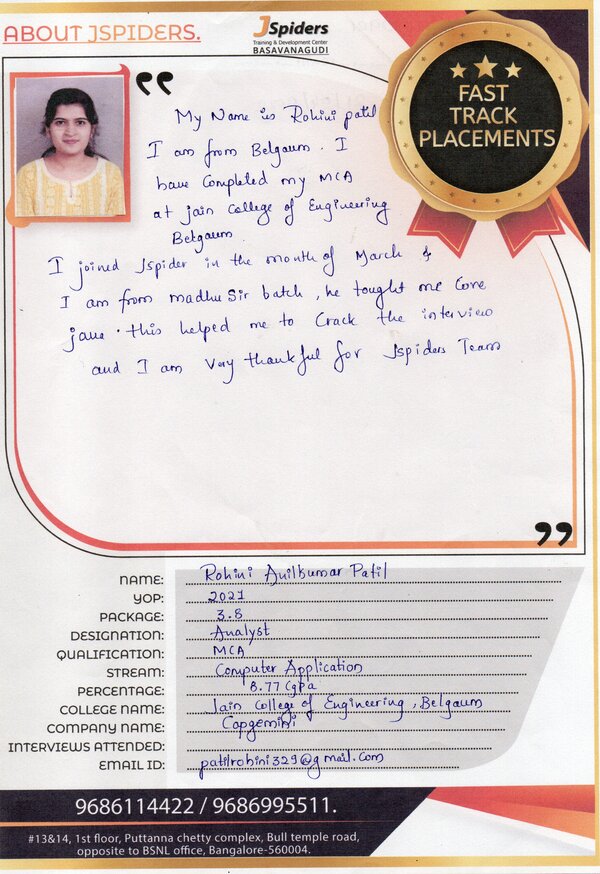 ABOUT JSPIDERS.
JSpiders
Training & Development Center
BASAVANAGUDI
FAST
TRACK
PLACEMENTS
My Name is Rohini patil
I am from Belgaum. I
have Completed my MCA
at jain College of Engineering
Belgaum
I joined Jspider in the month of March &
I am from madhu Sir batch, he tought me Core
java. this helped me to Crack the interview
and I am Very thankful for Jspiders Team
NAME: Rohini Anilkumar Patil
YOP: 2021
PACKAGE: 3.8
DESIGNATION: Analyst
QUALIFICATION: MCA
STREAM: Computer Application
PERCENTAGE: 8.77 Cgpa
COLLEGE NAME: Jain College of Engineering, Belgaum
COMPANY NAME: Capgemini
INTERVIEWS ATTENDED:
EMAIL ID: patilrohini329@gmail.com
9686114422 / 9686995511.
#13&14, 1st floor, Puttanna chetty complex, Bull temple road,
opposite to BSNL office, Bangalore-560004.